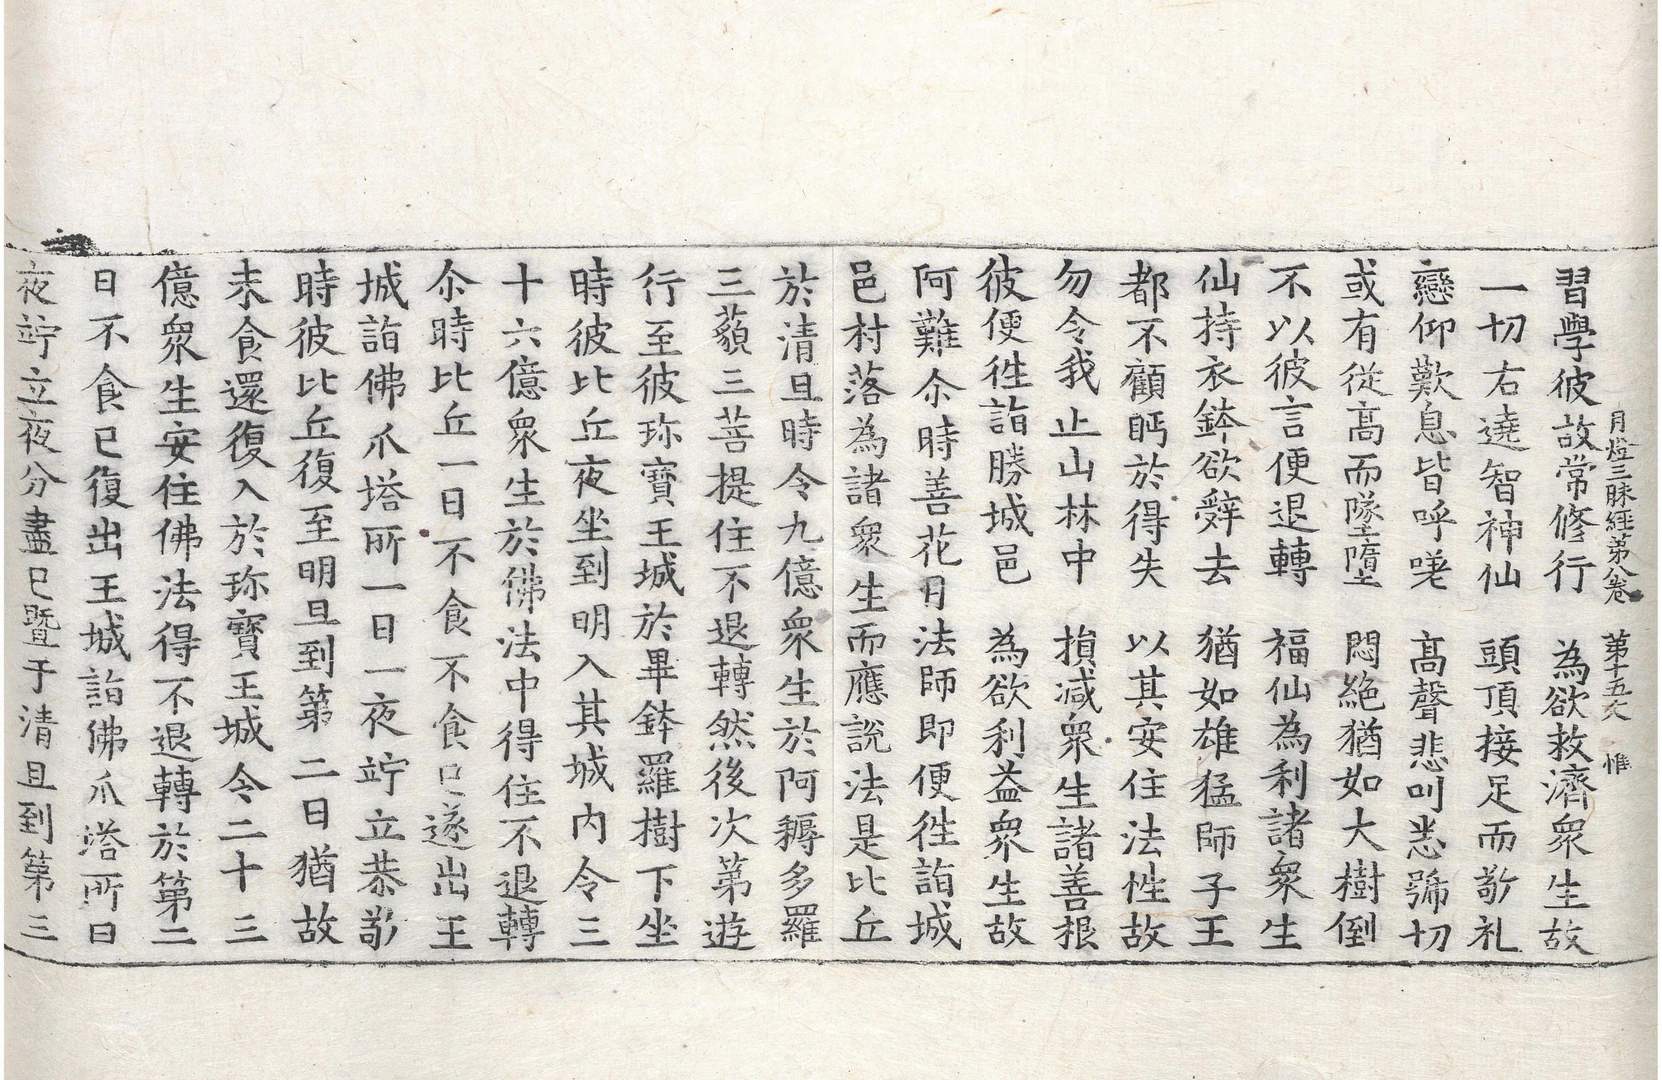 月燈三昧經第八卷 第十五丈 惟
習學彼故常修行 為欲救濟衆生故
一切右遶智神仙 頭頂接足而敬礼
戀仰歎息皆呼嗟 高聲悲叫恙號切
或有從高而墜墮 悶絕猶如大樹倒
不以彼言便退轉 福仙為利諸衆生
仙持衣鉢欲辤去 猶如雄猛師子王
都不顧眄於得失 以其安住法性故
勿令我止山林中 損減衆生諸善根
彼便徃詣勝城邑 為欲利益衆生故
阿難尒時善花月法師即便徃詣城
邑村落為諸衆生而應說法是比丘
於清旦時令九億衆生於阿耨多羅
三藐三菩提住不退轉然後次第遊
行至彼珎寶王城於畢鉢羅樹下坐
時彼比丘夜坐到明入其城內令三
十六億衆生於佛法中得住不退轉
尒時比丘一日不食不食已遂出王
城詣佛爪塔所一日一夜竚立恭敬
時彼比丘復至明旦到第二日猶故
未食還復入於珎寶王城令二十三
億衆生安住佛法得不退轉於第二
日不食已復出王城詣佛爪塔所日
夜竚立夜分盡已暨于清旦到第三